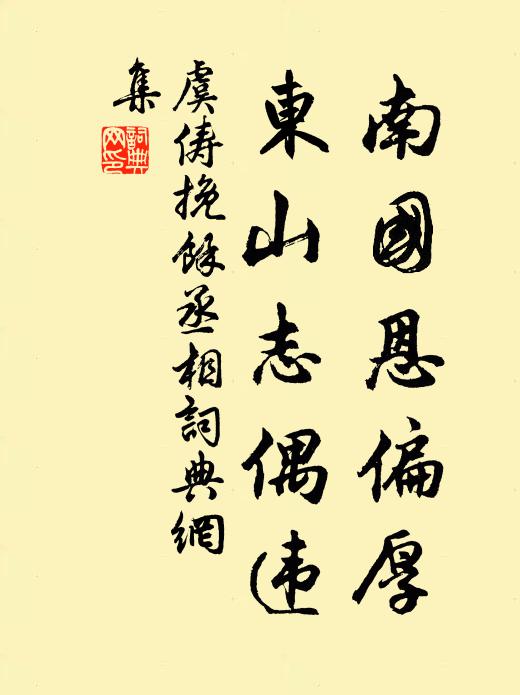 南國恩偏厚
東山志偶违
虞俦挽餘丞相詞典網
集
詞典
网印